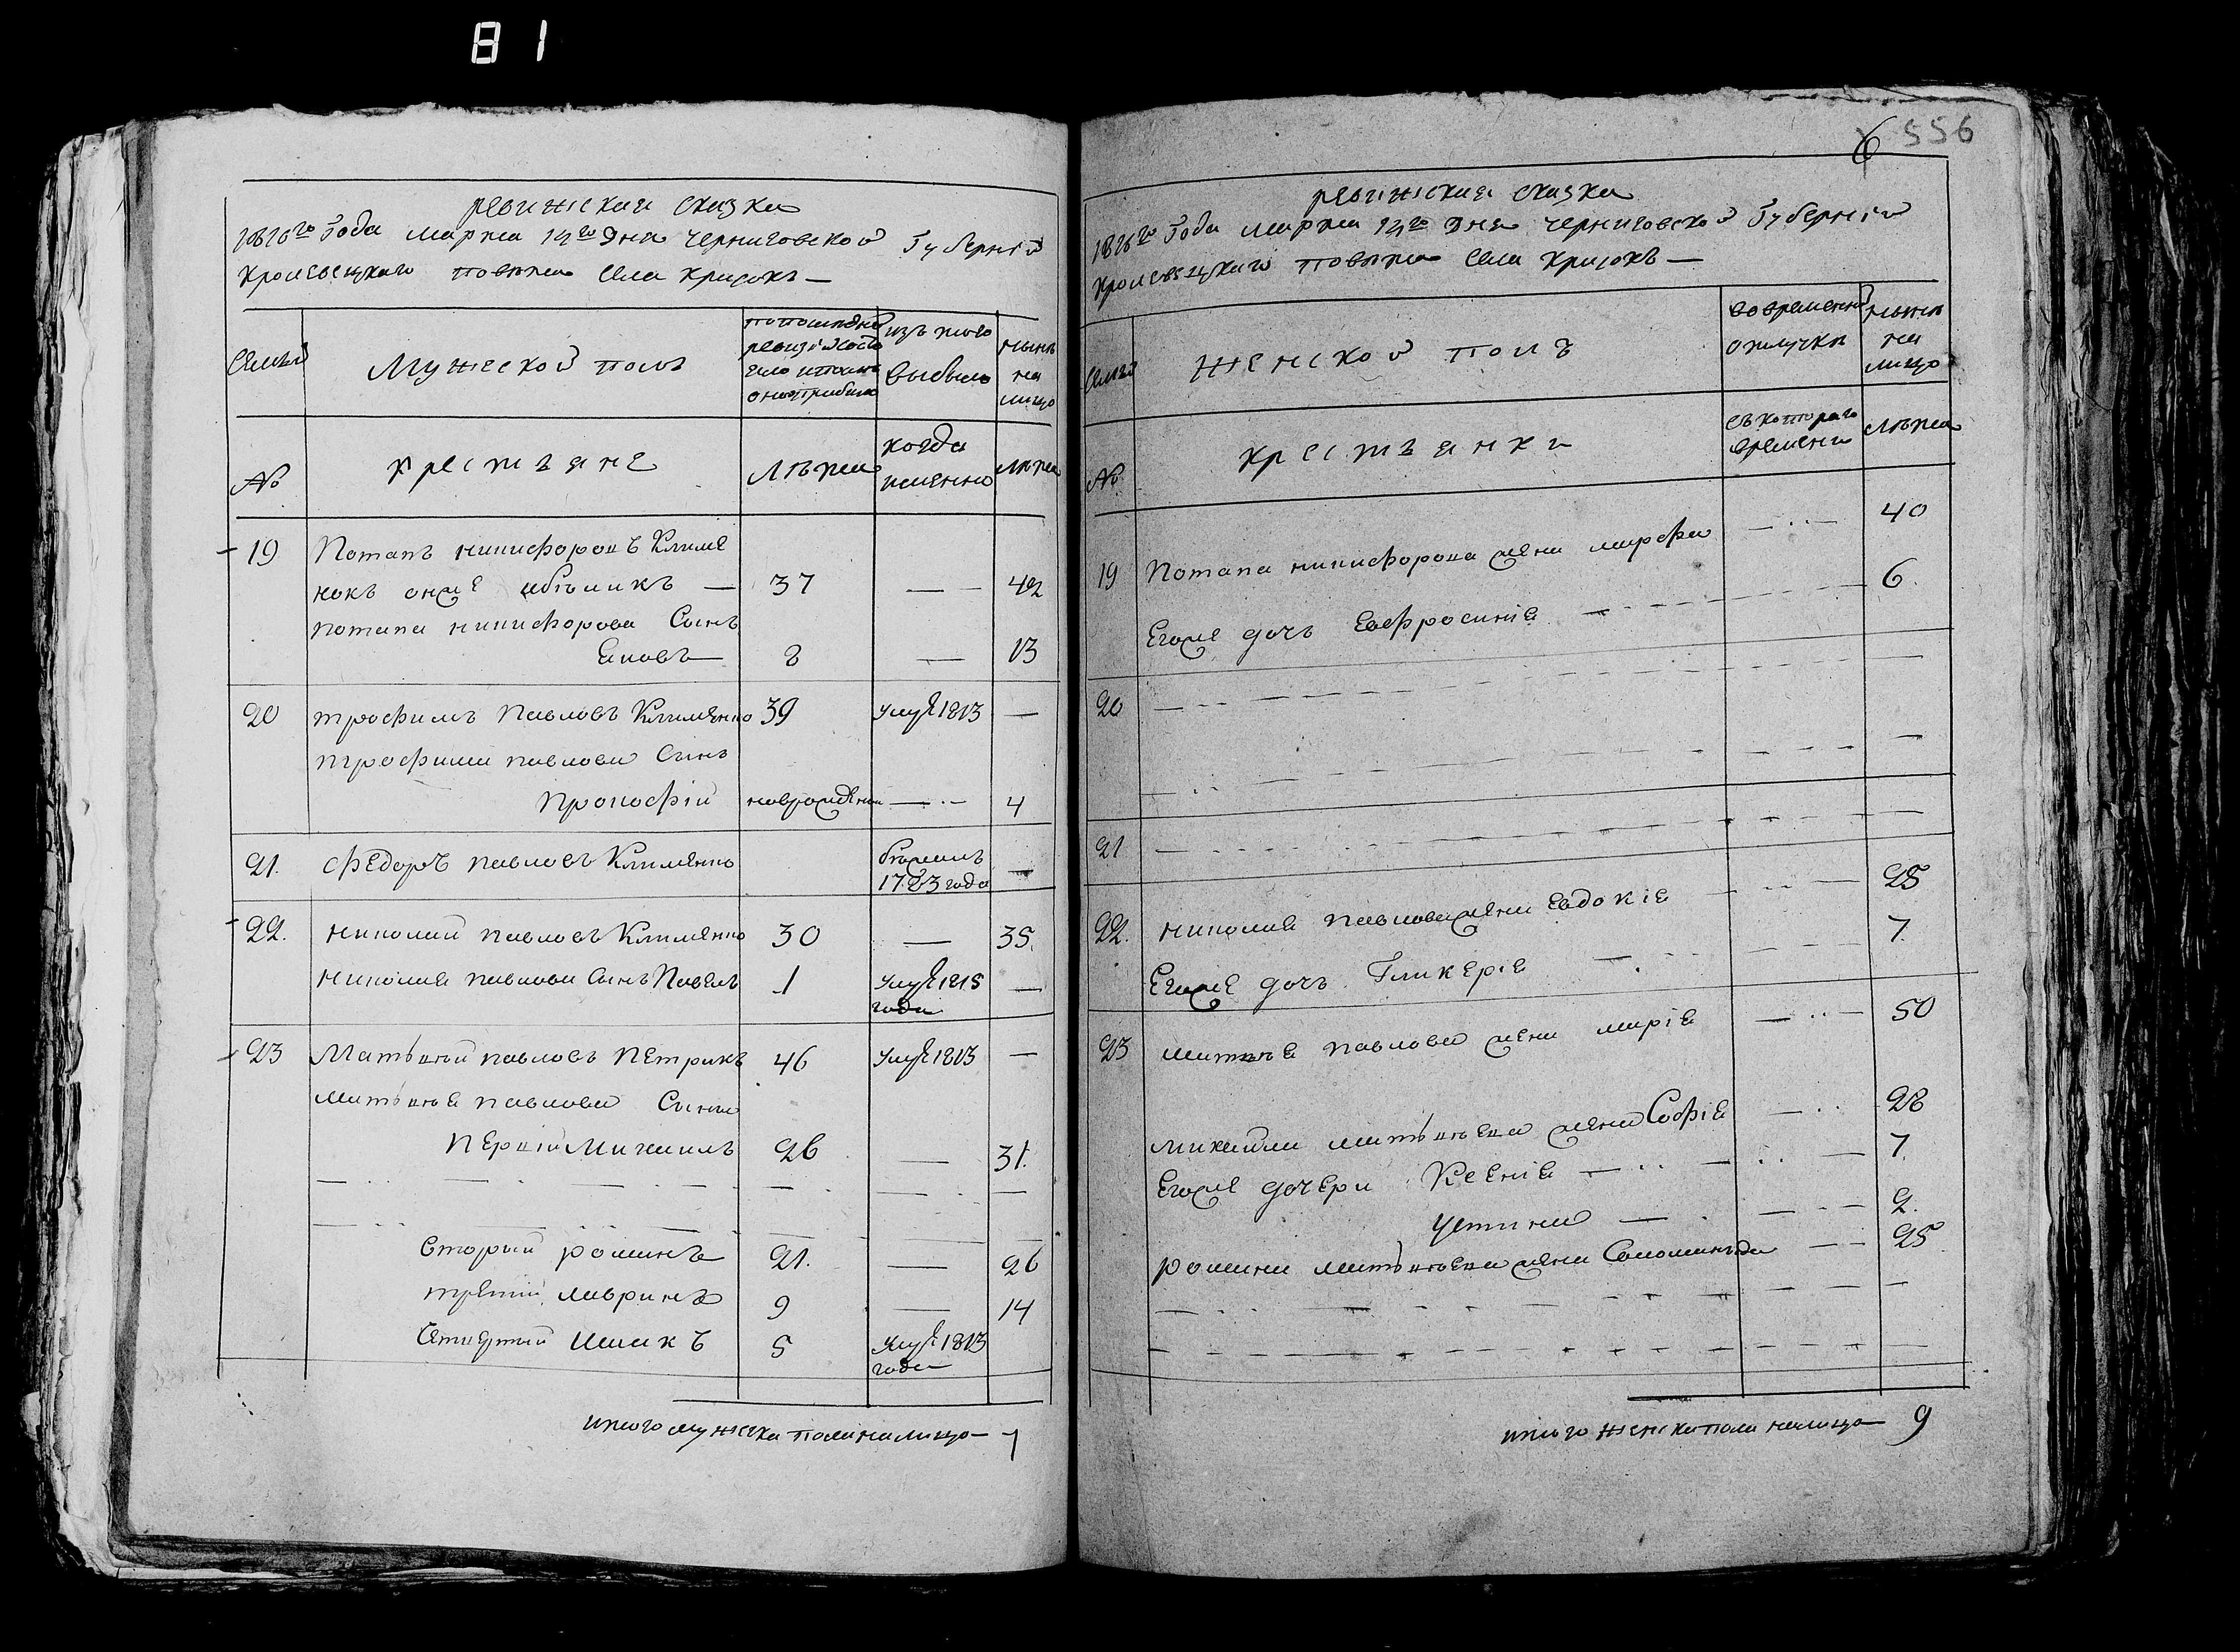 81
ревижская сказка
1816го Года марта 14го Дня Черниговской Губернiи
Кролевецкаго Повета Села Крисокъ —
Семьи
Мужеской полъ
по последней ревизiи состояло и после оной прибыло
изъ того выбыло
ныне на лицо
№
крестьяне
Лета
когда именно
Лета
19 Потапъ никифоровъ Климе
нокъ онже — 37 — 42
потапа никифорова Сынъ
Яковъ — 8 — 13
20 трофимъ павловъ Клименко 39 умре 1813 —
трофима павлова Сынъ
Прокофiй новрожденъ — 4
21. Федоръ павловъ Клименко бежалъ —
17.83 года
22. николай павловъ Клименко 30 — 35.
николая павлова Сынъ Павелъ 1 умре 1815 —
года
23 Матвей павловъ Петрикъ 46 умре 1813 —
матвея павлова Сыны
первiй Михаилъ 26 — 31.
вторый романъ 21. — 26
третiй лавринъ 9 — 14
Четвертый Исакъ 5 умре 1813
года
итого мужска пола налицо — 7
6 556
ревижская сказка
1816го Года марта 14го Дня Черниговской Губернiи
Кролевецкаго Повета Села Крисокъ —
Семьи
Женской полъ
во временной отлучке
ныне на лицо
№
крестьянки
съ котораго времени
Лета
19 Потапа никифорова жена марфа — 40
Егоже дочь Евфросинiя — 6.
20
21
22. николая павлова жена Евдокiя — 25
Егоже дочь Гликерiя — 7.
23 матвея павлова жена марiя — 50
михайла матвеева жена Софiя — 28
Егоже дочери Ксенiя — 7.
устина — 2.
романа матвеева жена Соломанида — 25
итого женска пола налицо — 9